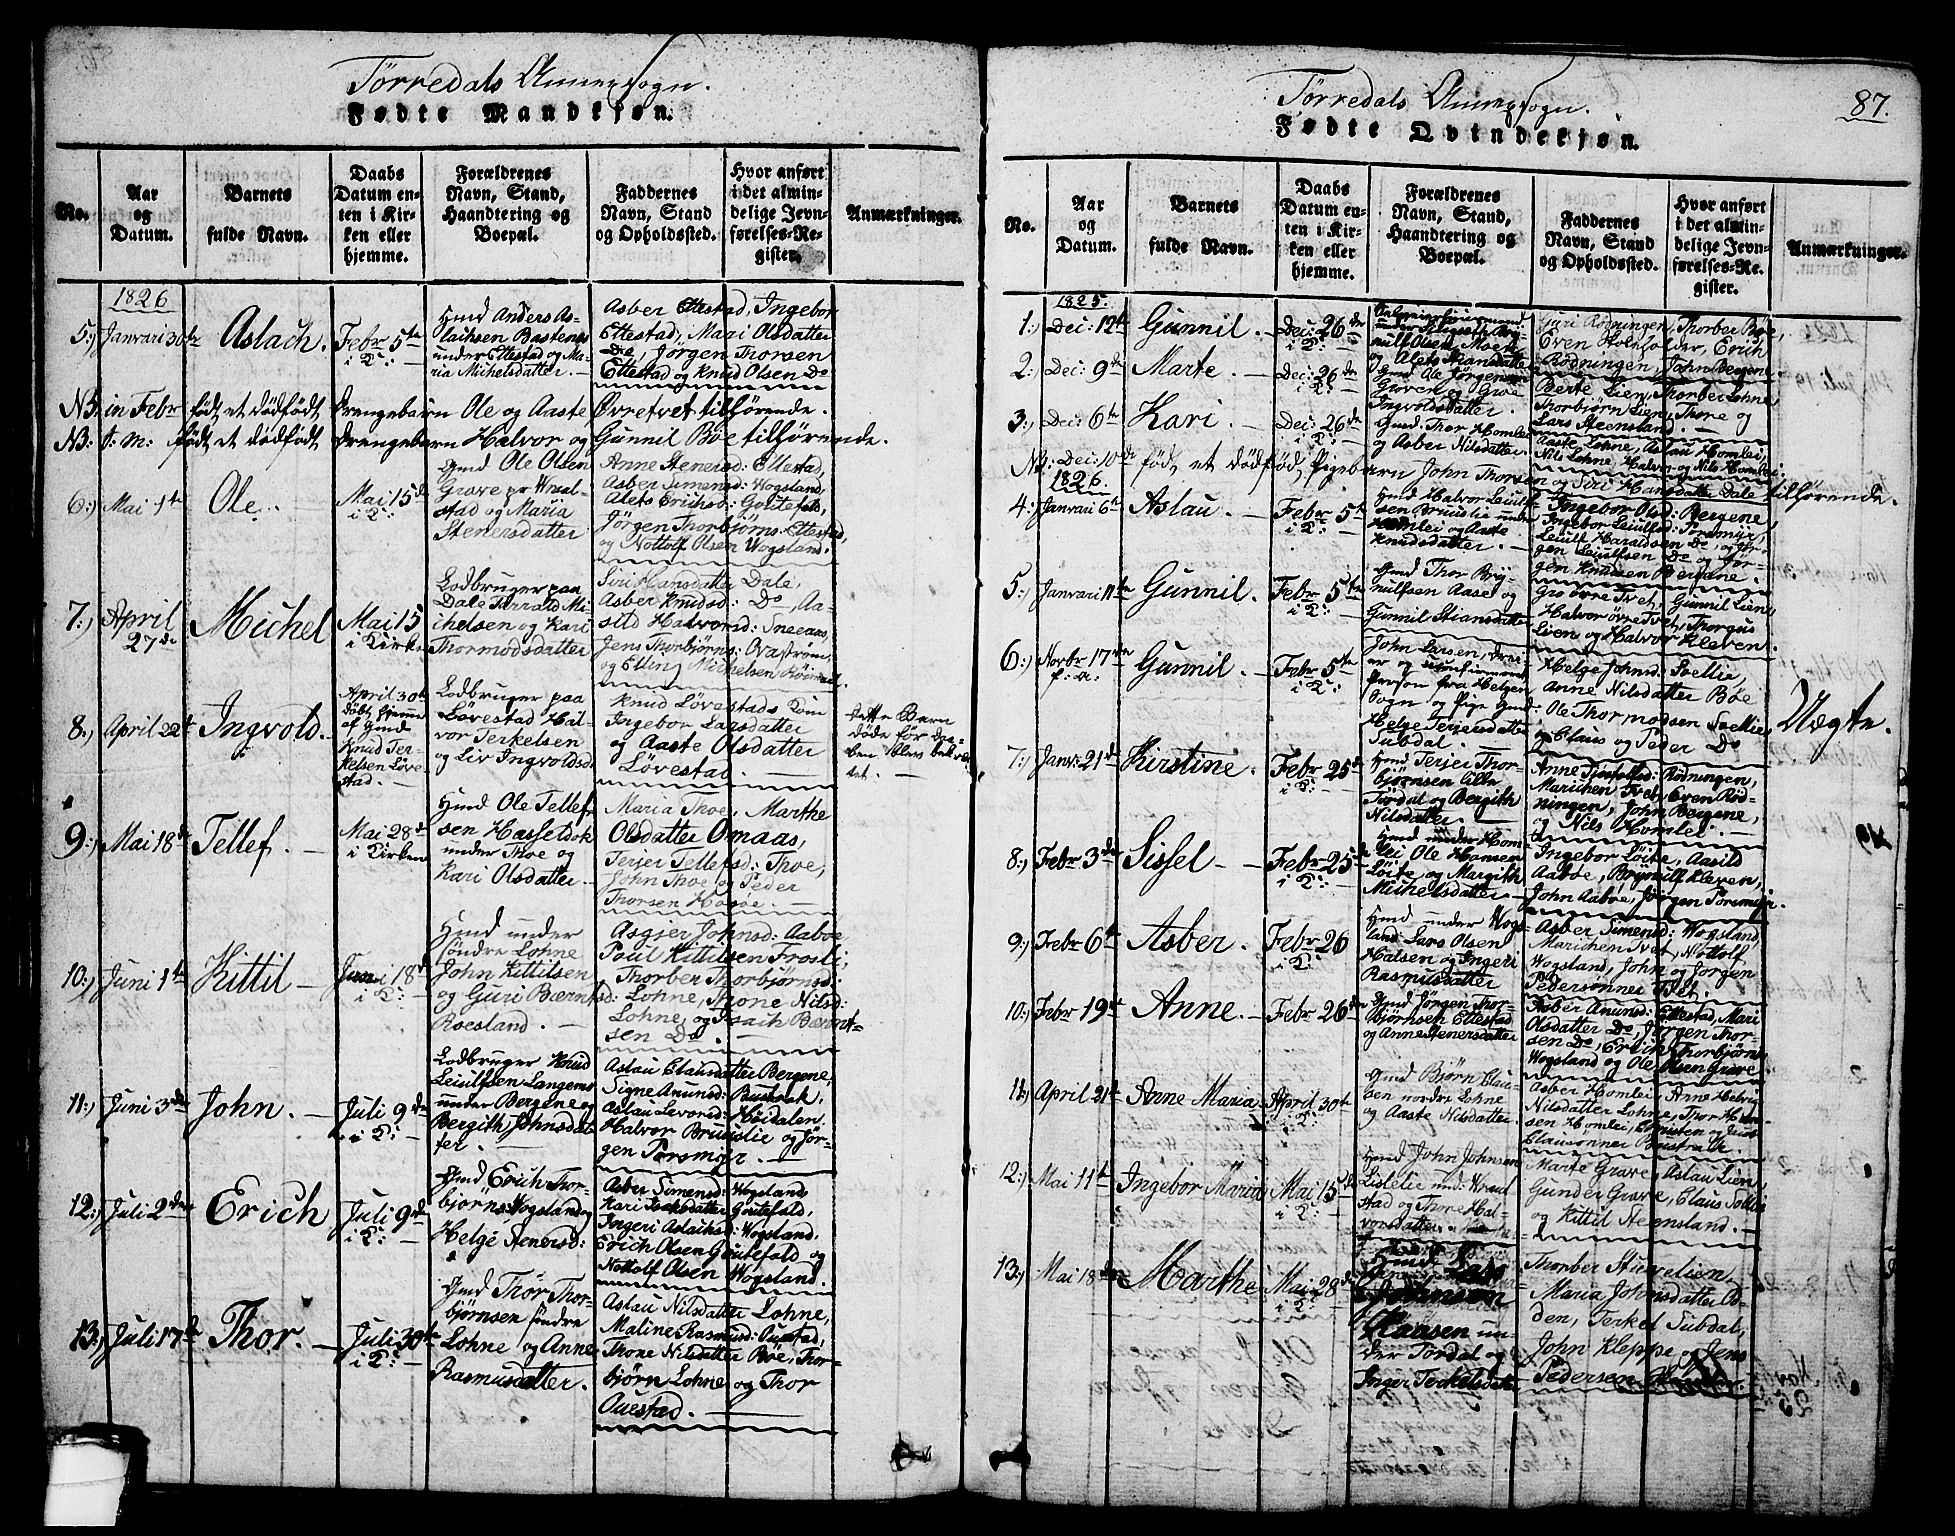 Tørredals Annexsogn.
Fødte Mandkjøn.
No.
Aar
og
Datum.
Barnets
fulde Navn.
Daabs
Datum en-
ten i Kir-
ken eller
hjemme.
Forældrenes
Navn, Stand,
Haandtering og
Boepæl.
Faddernes
Navn, Stand
og Opholdssted.
Hvor anført
i det almin-
delige Jevn-
førelses-Re-
gister.
Anmærkninger.
1826
5:) Januari 30te
Aslach.
Febr 5te
i K:
Gmd Anders As-
lachsen Bastenes
under Ettestad og Ma-
ria Michelsdatter. —
Asber Ettestad, Ingebor
Ettestad, Mari Olsdatter
Do, Jørgen Thorsen
Ettestad og Knud Olsen Do
NB. in Febr født et dødfødt Drengebarn Ole og Aaste Øvretvet tilhørende.
NB: s. m: født et dødfødt Drengebarn Halvor og Gunnil Bøe tilhørende.
6:) Mai 1te
Ole.
Mai 15de
i K:
Gmd Ole Olsen
Grave pr Wraal-
stad og Maria
Stenersdatter
Anne Stenersd: Ettestad,
Asber Simensd: Wogsland,
Alets Erichsd: Goutefald,
Jørgen Thorbjørns: Ettestad,
og Nottolf Olsen Wogsland.
7:) April
27de
Michel
Mai 15
i Kirken
Lodbruger paa
Dale Tarrald Mi-
chelsen og Kari
Thormodsdatter
Siri Hansdatter Dale,
Asber Knudsd: Do, Aa-
sild Halvorsd: Sneeaas,
Jens Thorbjørns: Ovastrøm,
og Elling Michelsen
8:) April 22de
Ingvold.
April 30te
døbt hjemme
af Gmd
Knud Ter-
kelsen Løve-
stad. —
Lodbruger paa
Løvestad Hal-
vor Terkelsen
og Liv Ingvoldsd
Knud Løvestads Kone
Ingebor Larsdatter
og Aaste Olsdatter
Løvestad. —
Dette Barn
døde før Daa-
ben blev bekræf-
tet. —
9:) Mai 18de
Tellef. —
Mai 28de
i Kirken
Hmd Ole Tellef-
sen Hasselbok
under Thoe og
Kari Olsdatter —
Maria Thoe, Marthe
Olsdatter Omaas,
Terjer Tellefsd: Thoe,
John Thoe og Peder
Thorsen Haaøe. —
10:) Juni 1te
Kittil —
Juni 18de
i K:
Hmd under
søndre Lohne
John Kittilsen
og Guri Bærntsd:
Roesland. —
Asgjer Johnsd: Aabøe
Poul Kittilsen Frosli,
Thorber Thorbjørnsd:
Lohne, Thone Nilsd:
Lohne, og Isach Bærnt-
sen Do. —
11:) Juni 3die
John. —
Juli 9de
i K:
Lodbruger Knud
Leiulfsen Langemyr
under Bergene og
Bergith Johnsdat-
ter. —
Aslau Clausdatter Bergene,
Signe Anunds: Buestrak,
Aslau Levorsd: Høidalen,
Halvor Bruuslie og Jør-
gen Torsmyr. —
12:) Juli 2den
Erich
Juli 9de
i K:
Gmd Erich Thor-
bjørns: Wogsland og
Helge Stenersd:
Asber Simensd: Wogsland
Kari Isaksdatter Goutefald,
Ingeri Aslaksd: Wogsland,
Erich Olsen Goutefald og
Nottolf Olsen Wogsland.
13:) Juli 17de
Thor. —
Juli 30te
i K:
Gmd Thor Thor-
bjørnsen søndre
Lohne og Anne
Rasmusdatter.
Aslau Nilsdatter Lohne,
Maline Rasmusd: Ouestad,
Thone Nilsdatter Bøe, Thor-
bjørn Lohne og Thor
Ouestad. —
87.
Tørredals Annexsogn.
Fødte Qvindekjøn.
No.
Aar
og
Datum.
Barnets
fulde Navn.
Daabs
Datum en-
ten i Kir-
ken eller
hjemme.
Forældrenes
Navn, Stand,
Haandtering og
Boepæl.
Faddernes
Navn, Stand
og Opholdssted.
Hvor anført
i det almin-
delige Jevn-
førelses-Re-
gister.
Anmærkninger.
1825.
1:) Dec: 12te
Gunnil. —
Dec: 26de
i K:
nulf Olsen Moe
og Alets Hansdatter
Guri Rødningen, Thorber Bøe,
Even Stokholder, Erich
Rødningen, John Bergene.
2:) Dec: 9de
Marte. —
Dec: 26de
i K:
Gmd Ole Jørgensen
Graven og Groe
Ingvoldsdatter.
Berte Lien, Thorber Lohne,
Thorbjørn Lien, Thore og
Lars Steensland. —
3:) Dec: 6te
Kari. —
Dec: 26de
i K:
Gmd: Thor Homlei
og Asber Nilsdatter.
Aaste Lohne, Aslau Homlei,
Nils Lohne, Halvor og Nils Homlei
NB: Dec: 10de født et dødfødt Pigebarn John Thorsen og Siri Hansdatter Dale tilhørende.
1826.
4:) Januari 6te
Aslau. —
Febr 5te
i K:
Hmd Halvor Leiulf-
sen Bruuslie under
Homlei og Aaste
Knudsdatter. —
Ingebor Olsd: Bergene,
Ingebor Leiulfsd: Torsmyr,
Leiulf Haraldsen Do, og Jør-
gen Leiulfsen Do og Jør-
gen Knudsen Bergene.
5:) Januari 11te
Gunnil.
Febr 5te
i K:
Gmd Thor Bry-
nulfsen Aase og
Gunnil Stiansdatter
Gro øvre Tvet, Gunnil Lien
Halvor øvre Tvet, Thorgus
Lien og Halvor Kleven.
6:) Novbr 17de
f. a:
Gunnil. —
Febr 5te
i K:
John Larsen,
Person fra Helgen
Sogn og Pige Gmd:
Helge Terjersdatter
Tubdal.
Helge Johnsd: Svellie,
Anne Nilsdatter Bøe
Ole Thormodsen Svellie,
og Claus og Peder Do
Uægte.
7:) Janr: 21de
Kirstine.
Febr 25de
i K:
Hmd Terjer Thor-
bjørnsen Lille
Tørdal og Bergith
Nilsdatter.
Anne Rødningen,
Marichen Tvet, Even Rød-
ningen, John Bergene,
og Nils Homlei. —
8:) Febr 3die
Sissel —
Febr 25de
i K:
Hmd under Hom-
lei Ole Hansen
Løite og Margith
Michelsdatter
Ingebor Løite, Aasild
Aabøe, Brynulf Kleven,
John Aabøe, Jørgen Torsmyr.
9:) Febr 6te
Asber.
Febr 26
i K:
Hmd under Wogs-
land: Lars Olsen
Halsen og Ingeri
Rasmusdatter
Asber Simensd: Wogsland,
Marichen Tvet, Nottolf
Wogsland, John og Jørgen
Pedersønner Tvet.
10:) Febr 19de
Anne. —
Febr 26de
i K:
Gmd Jørgen Thor-
bjørnsen Ettestad
og Anne Stenersdatter
Asber Anunds: Ettestad, Mari
Olsdatter Do, Jørgen Thor-
sen Do, Erich Thorbjørns:
Wogsland og Ole Olsen Grave.
11:) April 21de
Anne Maria
April 30te
i K:
Gmd Bjørn Clau-
sen nordre Lohne
og Aaste Nilsdatter.
Asber Homlei, Anne Helvig
Nilsdatter Lohne, Thor Hans-
sen Homlei, Christen og
Clausønner Buestrak.
12:) Mai 11te
Ingebor Maria
Mai 15de
i K:
Hmd John Johnsen
Lislelie und: Wraal-
stad og Thore Hal-
vorsdatter.
Marte Grave, Aslau Lien,
Gunder Grave, Claus
og Kittil Steensland. —
13:) Mai 18de
Marthe
Mai 28de
i K:
Hmd Lars
Johnson
Klaasen un-
der Tørdal og
Inger Terkelsdatter
Thorber Stuevelien,
Maria Johnsdatter Os-
den, Terkel Tubdal,
John Kleppe og Jens
Pedersen